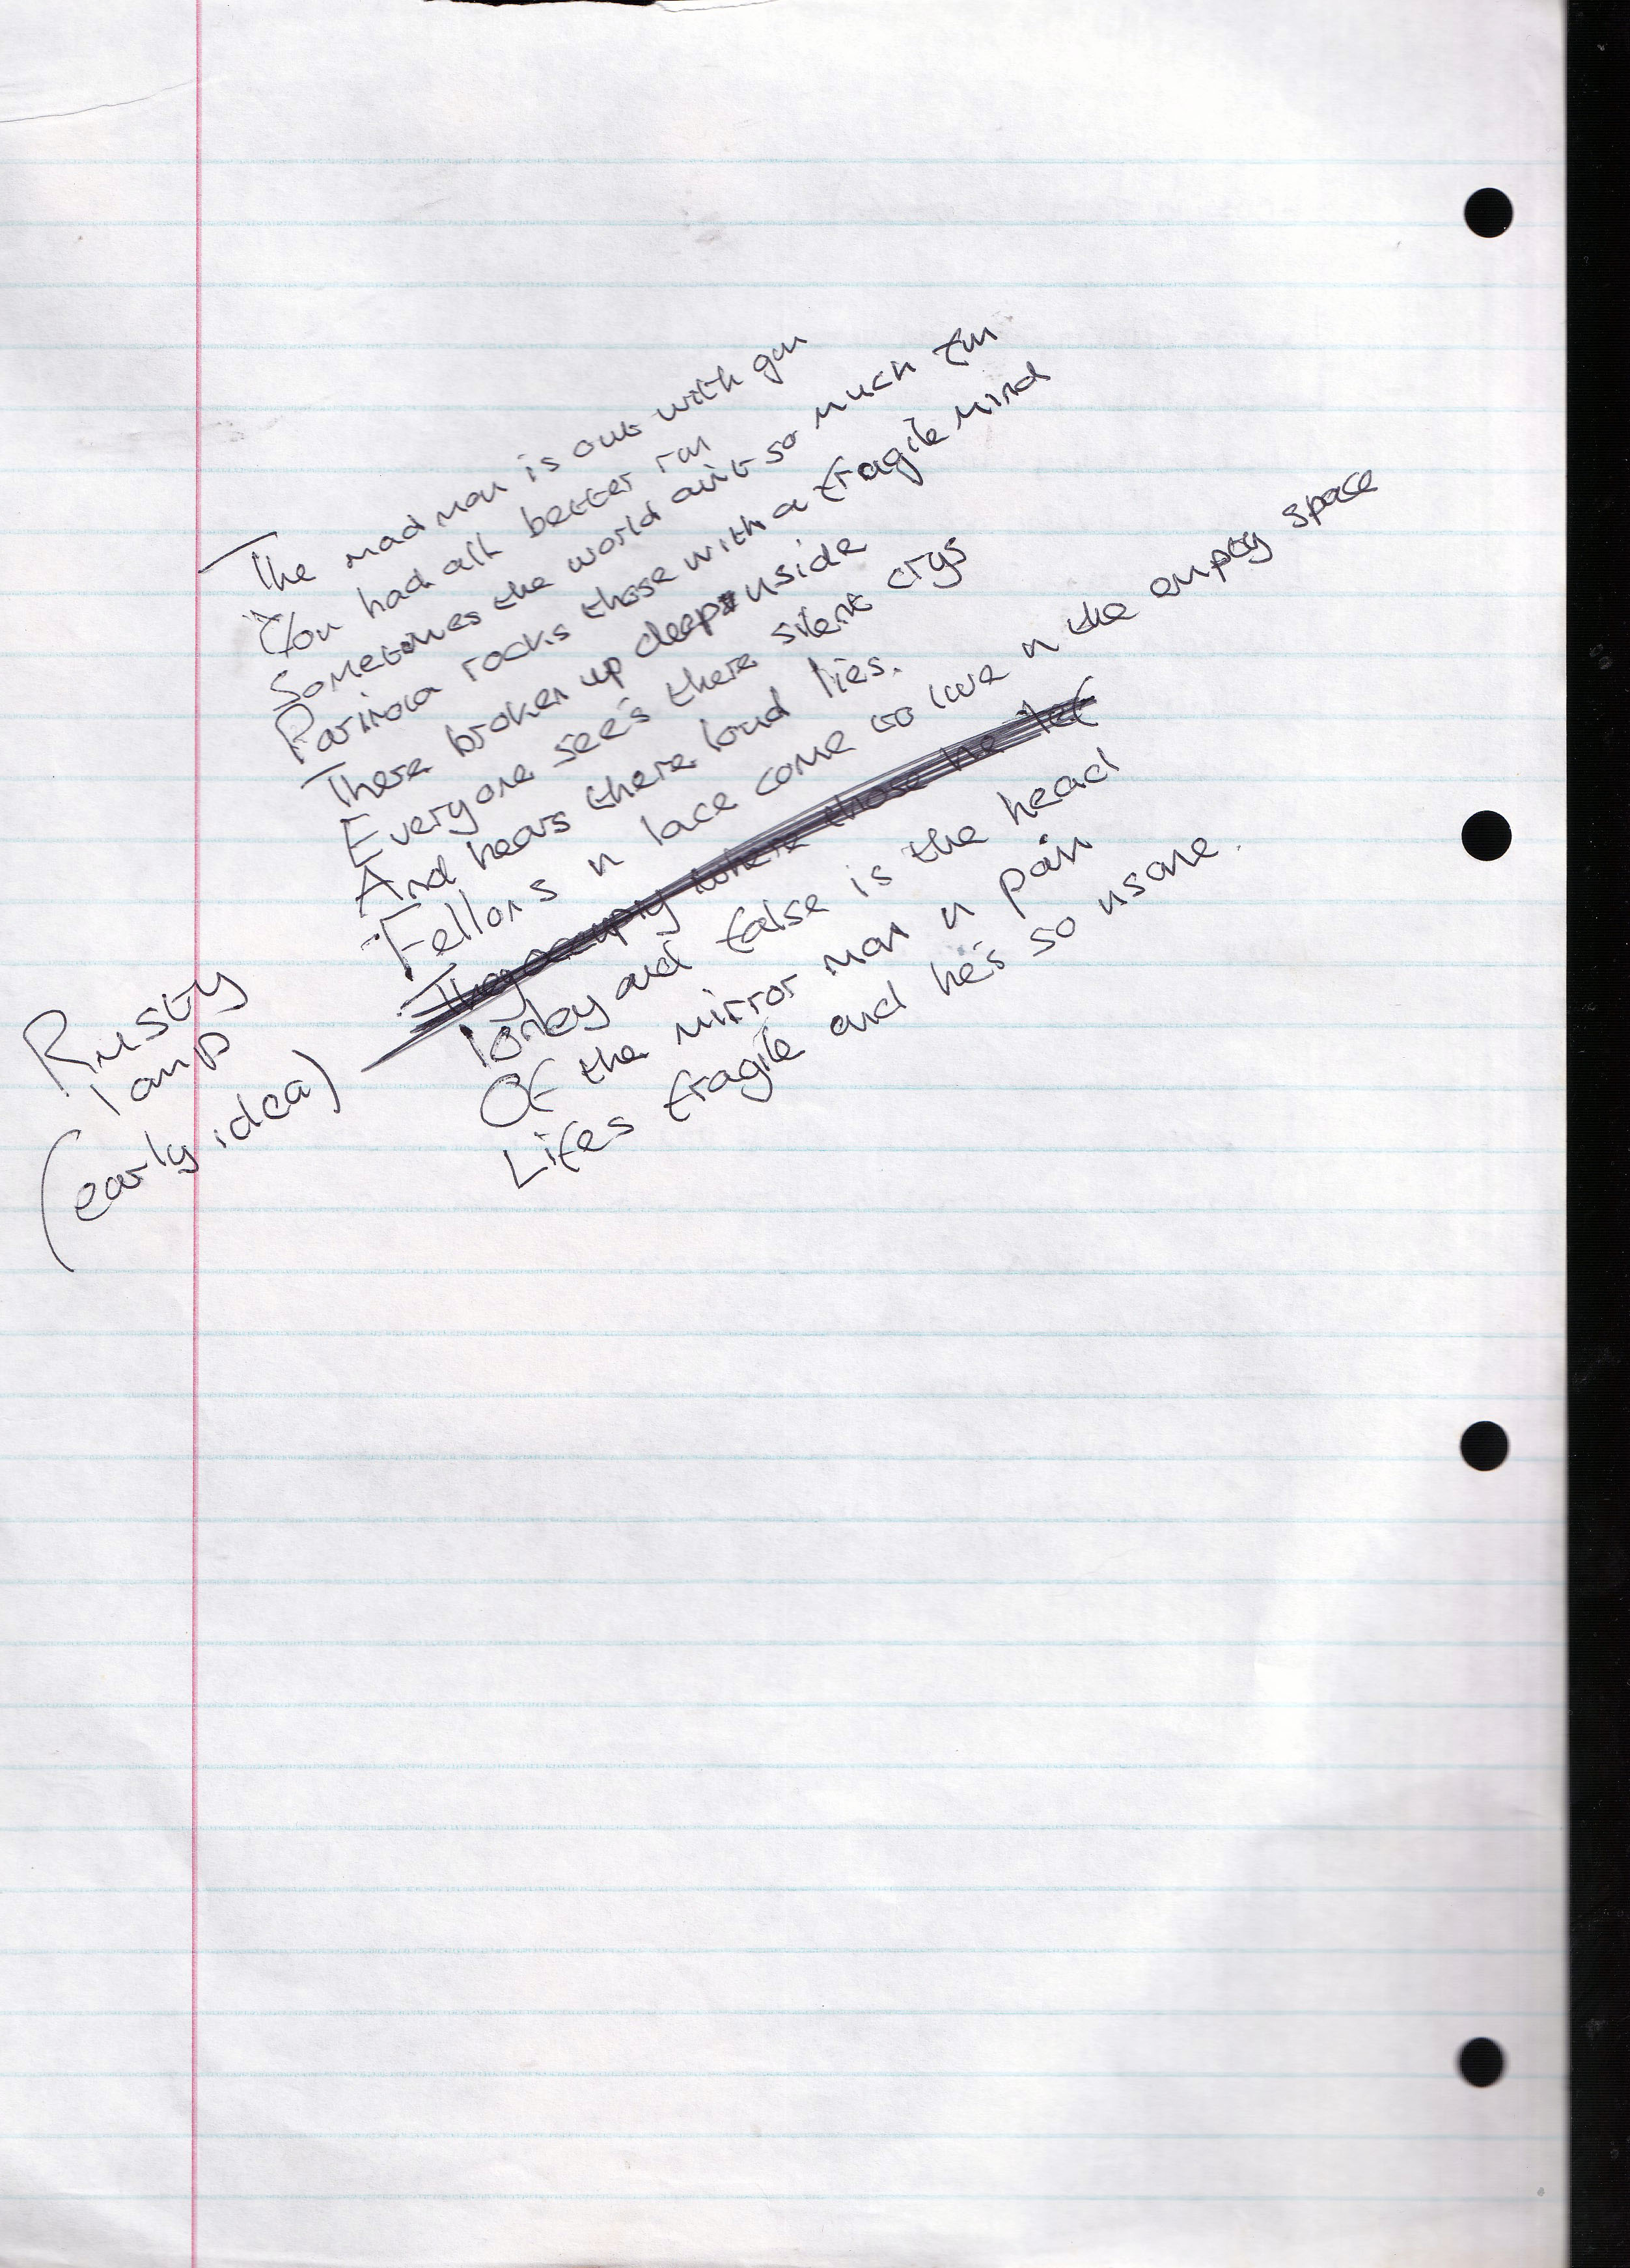 The mad man is out with gun
You had all better run
Sometimes the world ain't so much fun
Parinoia rocks those with a fragile mind
There broken up deep nside
Everyone see's there silent crys
And hears there loud lies.
Fellons n lace come to live n the empty space
They occupy where those he lef
lonley and false is the head
Of the mirror man n pain
Lifes fragile and he's so nsane.
Rusty
lamp
(early idea)